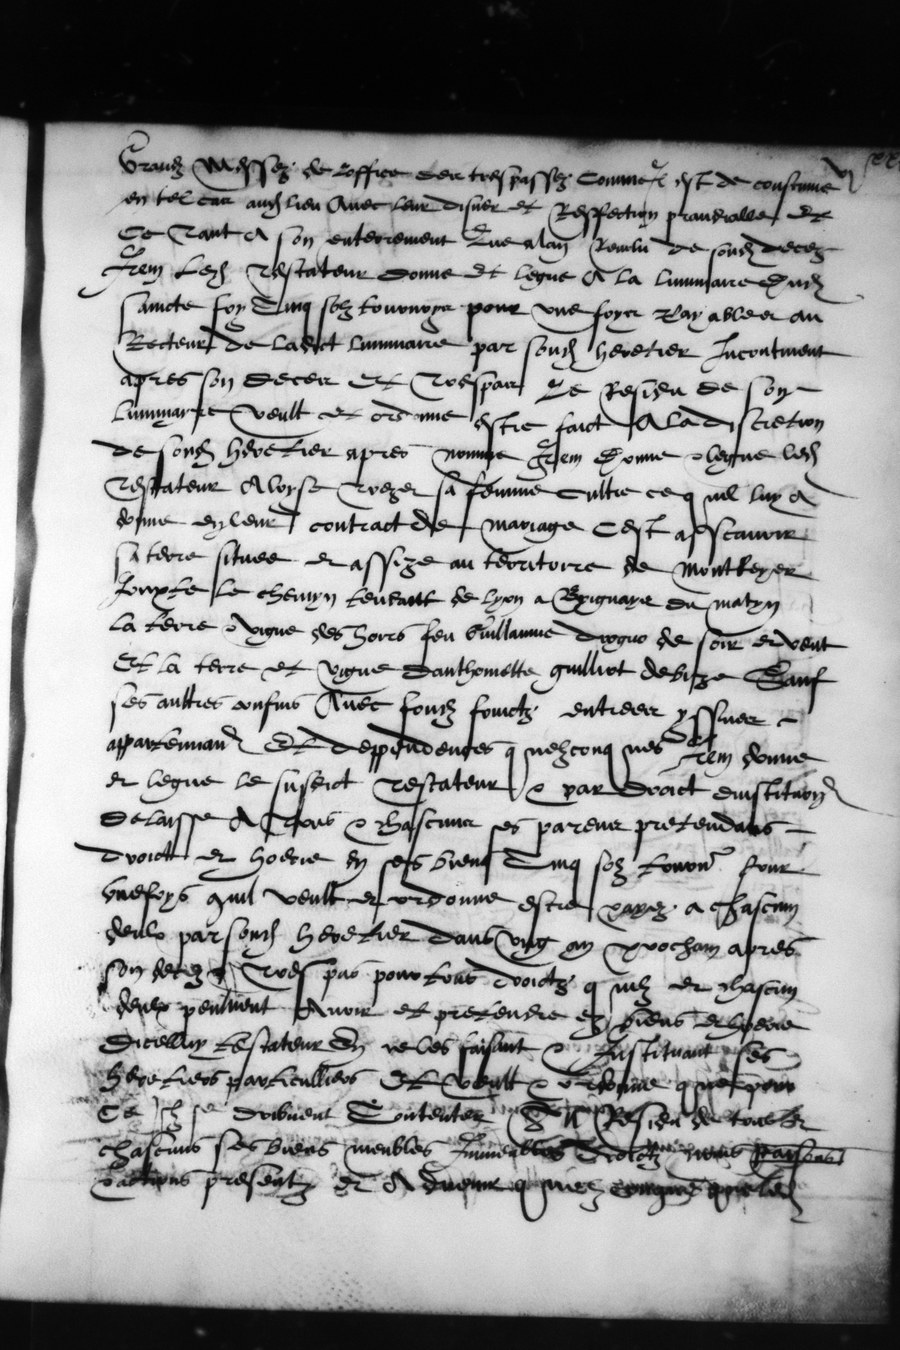 Grandz Messez de loffice des trespassez comme il est de coustume
en tel cas aud lieu Avec leur disner et Reffection prandialle Et
Ce tant A son enterrement que alan Revolu de sond deces
Item led testateur donne et legue A la luminaire dud
saincte foy Cinq solz tournoys pour une foys payables au
Recteur de ladict luminaire par sond heretier Incontinent
apres son deces et trespas Le Residu de son
luminayre veult et ordonne estre faict A la discretion
de sond heretier apres nomme Item donne & legue led
testateur A loyse sa femme oultre ce quil luy a
donne en leur contract de mariage Cest asscavoir
sa terre situee et assize au territoire de
Jouxte le chemyn tendant de lyon a du matyn
la terre & vigne des hoirs feu Guillaume de soir et vent
Et la terre et vigne danthomette guilliot de bize Sauf
ses aultres confins Avec fondz entrees yssues &
appartenans Et deppendences quelzconques Item donne
et legue le susdict testateur & par droict dinstitution
Delaisse A tous & chascuns ses parens pretendans
droict et hoerie en ses biens Cinq solz tourn pour
unefoys quil veult et ordonne estre payez a chascun
deulx par sond heretier dans ung an prochain apres
son deces & trespas pour tous droictz quilz et chascun
deulx peulvent Avoir et pretendre ez biens et hoerie
Dicelluy testateur En ce les faisant & Instituant ses
heretiers particulliers Et veult & ordonne que pour
Ce Ilz se doibvent Contenter Et Au Residu de tous et
chascuns ses biens meubles Immeubles droictz noms
& actions presentz Et A advenir quelz conques